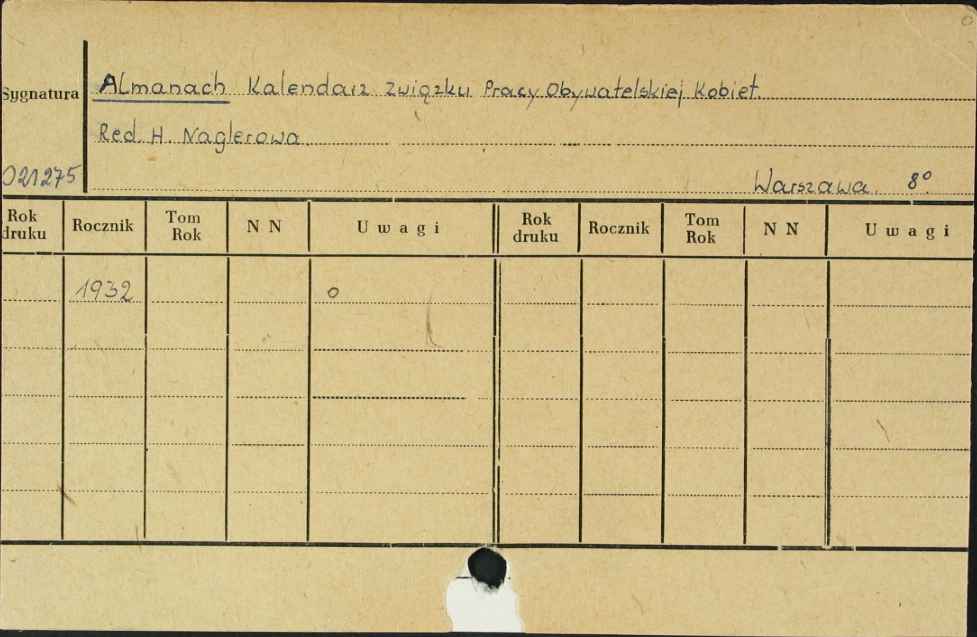 Sygnatura Almanach Kalendarz Związku Pracy Obywatelskiej Kobiet.
Red. H. Naglerowa.
021275
Warszawa. 8°.
Rok druku Rocznik Tom Rok N N Uwagi Rok druku Rocznik Tom Rok N N Uwagi
1932 o